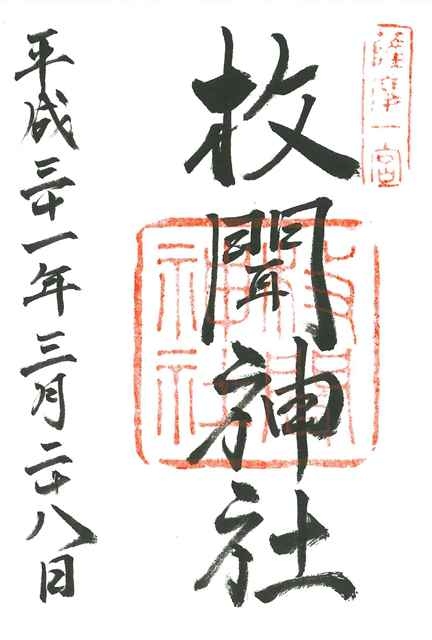 薩摩一宮
枚聞神社
枚聞神社
平成三十一年三月二十八日